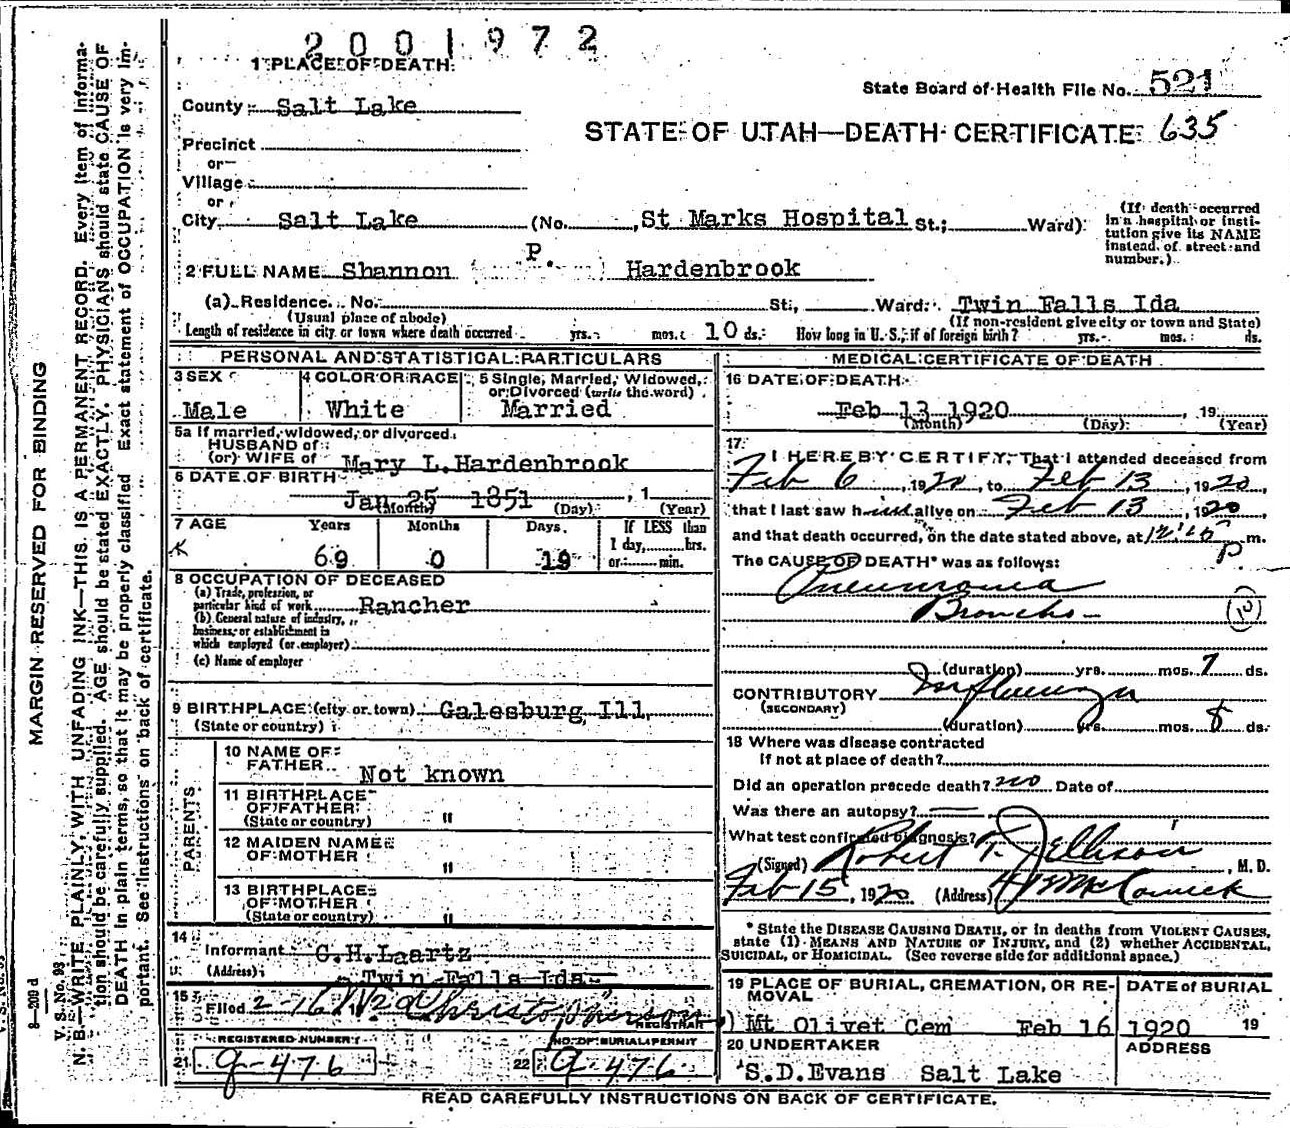 2001972
1 PLACE OF DEATH
State Board of Health File No. 521
County Salt Lake
STATE OF UTAH—DEATH CERTIFICATE 635
Precinct
or—
Village
or
City Salt Lake (No. , St Marks Hospital St.; Ward)
(If death occurred in a hospital or institution give its NAME instead of street and number.)
2 FULL NAME Shannon P. Hardenbrook
(a) Residence. No. St., Ward. Twin Falls Ida
(Usual place of abode) (If non-resident give city or town and State)
Length of residence in city or town where death occurred yrs. mos. 10 ds. How long in U. S., if of foreign birth? yrs. mos. ds.
PERSONAL AND STATISTICAL PARTICULARS
3 SEX Male
4 COLOR OR RACE White
5 Single, Married, Widowed, or Divorced (write the word) Married
5a If married, widowed, or divorced
HUSBAND of
(or) WIFE of Mary L.Hardenbrook
6 DATE OF BIRTH
Jan 25 1851 , 1
(Month) (Day) (Year)
7 AGE Years Months Days If LESS than
1 day, hrs.
69 0 19 or min.
8 OCCUPATION OF DECEASED
(a) Trade, profession, or
particular kind of work Rancher
(b) General nature of industry,
business, or establishment in
which employed (or employer)
(c) Name of employer
9 BIRTHPLACE (city or town) Galesburg Ill.
(State or country)
PARENTS
10 NAME OF FATHER Not known
11 BIRTHPLACE OF FATHER (State or country) "
12 MAIDEN NAME OF MOTHER "
13 BIRTHPLACE OF MOTHER (State or country) "
14
Informant C.H.Laartz
(Address) Twin Falls Ida
15
Filed 2-16 REGISTRAR
REGISTERED NUMBER NO. OF BURIAL PERMIT
21 G-476 22 G-476
MEDICAL CERTIFICATE OF DEATH
16 DATE OF DEATH
Feb 13 1920 , 19
(Month) (Day) (Year)
17
I HEREBY CERTIFY, That I attended deceased from
Feb 6 , 1920, to Feb 13 , 1920,
that I last saw him alive on Feb 13 , 1920
and that death occurred, on the date stated above, at P m.
The CAUSE OF DEATH* was as follows:
Pneumonia
Broncho-
(10)
(duration) yrs. mos. 7 ds.
CONTRIBUTORY Influenza
(SECONDARY)
(duration) yrs. mos. 8 ds.
18 Where was disease contracted
If not at place of death?
Did an operation precede death? no Date of
Was there an autopsy?
What test confirmed diagnosis?
(Signed) Robert T. Jellison , M. D.
Feb 15, 1920 (Address) McCornick
* State the DISEASE CAUSING DEATH, or in deaths from VIOLENT CAUSES,
state (1) MEANS AND NATURE OF INJURY, and (2) whether ACCIDENTAL,
SUICIDAL, or HOMICIDAL. (See reverse side for additional space.)
19 PLACE OF BURIAL, CREMATION, OR REMOVAL DATE OF BURIAL
Mt Olivet Cem Feb 16 1920 19
20 UNDERTAKER ADDRESS
S.D.Evans Salt Lake
READ CAREFULLY INSTRUCTIONS ON BACK OF CERTIFICATE.
MARGIN RESERVED FOR BINDING
N. B.—WRITE PLAINLY, WITH UNFADING INK—THIS IS A PERMANENT RECORD. Every item of informa-
tion should be carefully supplied. AGE should be stated EXACTLY. PHYSICIANS should state CAUSE OF
DEATH in plain terms, so that it may be properly classified. Exact statement of OCCUPATION is very im-
portant. See instructions on back of certificate.
8—209 d
V. S. No. 93